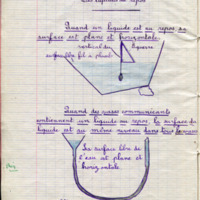 Les liquides au repos
Quand un liquide est au repos sa
surface est plane et horizontale.
vertical du
équerre
surface libre
fil à plomb
Quand des vases communicants
contiennent un liquide au repos la surface du
liquide est au même niveau dans tous
La surface libre de
l'eau est plane et
horizontale